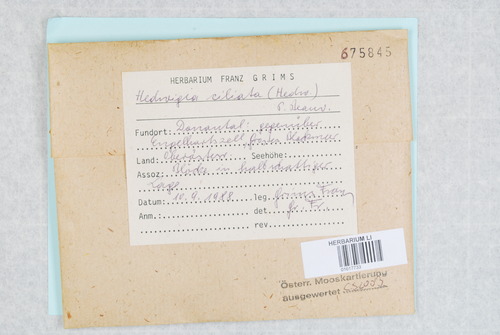 675845
HERBARIUM FRANZ GRIMS
Hedwigia ciliata (Hedw.)
P. Beauv.
Fundort: Donautal: gegenüber
Engelhartszell
Land: Oberösterr. Seehöhe:
Assoz: Blöcke in halbschattiger
Lage
Datum: 10.9.1988 leg. Grims Franz
Anm.: det. Gr. Fr.
rev.
HERBARIUM LI
Österr. Mooskartierung
ausgewertet